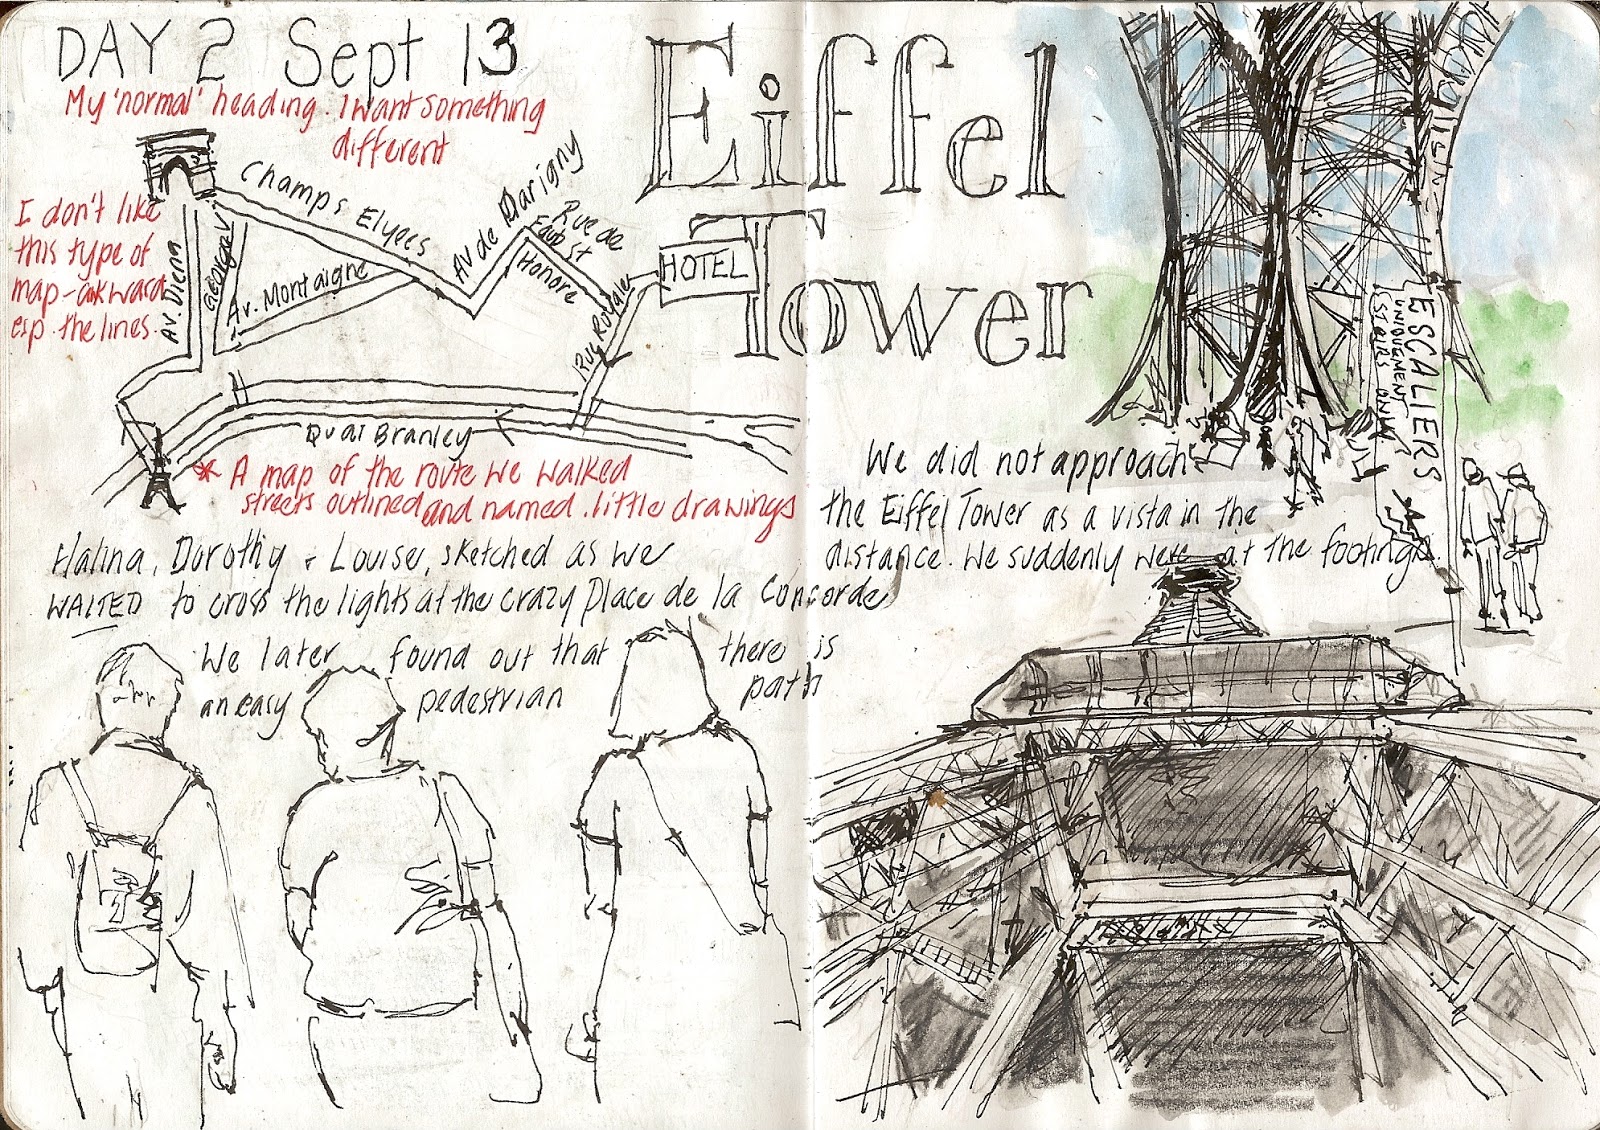 DAY 2 Sept 13
My 'normal' heading. I want something
different
Eiffel
Tower
I don't like
this type of
map - awkward
esp. the lines.
Champs Elyees
Av de Darigny
Rue de
Faub St
Honore
HOTEL
Rue Royale
AV. Diena
George V
Av. Montaigne
Quai Branley
* A map of the route we walked
streets outlined and named. little drawings
Halina, Dorothy + Louise, sketched as we
WAITED to cross the lights at the crazy Place de la Concorde
We later found out that there is
an easy pedestrian path
ESCALIERS
UNIQUEMENT
STAIRS ONLY
We did not approach
the Eiffel Tower as a vista in the
distance. We suddenly were at the footings.